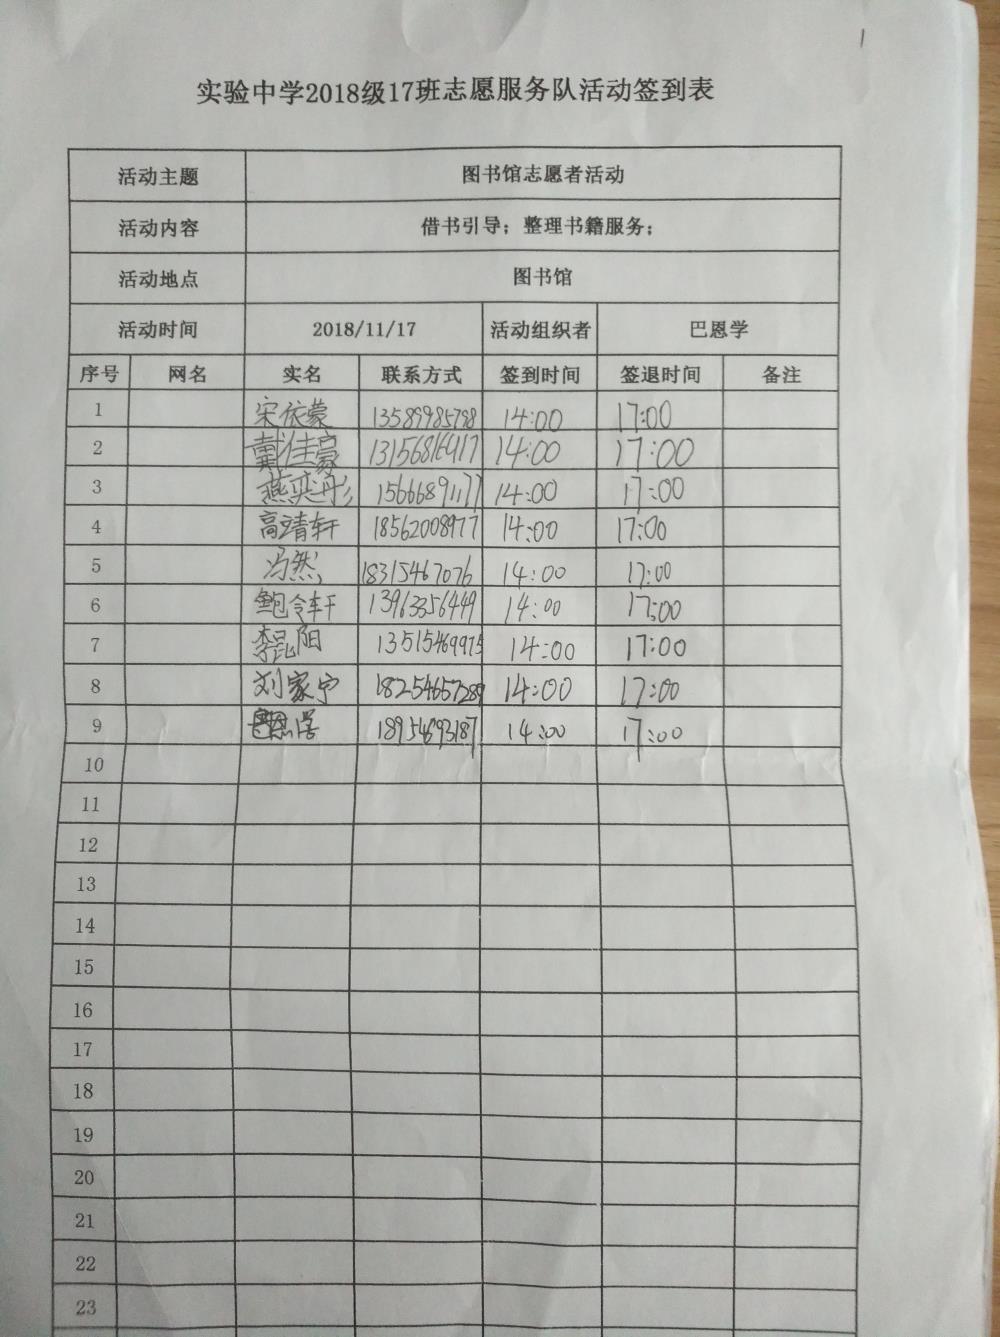 实验中学2018级17班志愿服务队活动签到表
活动主题 图书馆志愿者活动
活动内容 借书引导；整理书籍服务；
活动地点 图书馆
活动时间 2018/11/17 活动组织者 巴恩学
序号 网名 实名 联系方式 签到时间 签退时间 备注
1 宋依蒙 13589985798 14:00 17:00
2 戴佳豪 14:00 17:00
3 燕奕彤 15666891177 14:00 17:00
4 高靖轩 18562008977 14:00 17:00
5 冯然 18315467076 14:00 17:00
6 鲍令轩 13963356449 14:00 17:00
7 李昆阳 13515469975 14:00 17:00
8 刘家宁 18254657289 14:00 17:00
9 18954693187 14:00 17:00
10
11
12
13
14
15
16
17
18
19
20
21
22
23